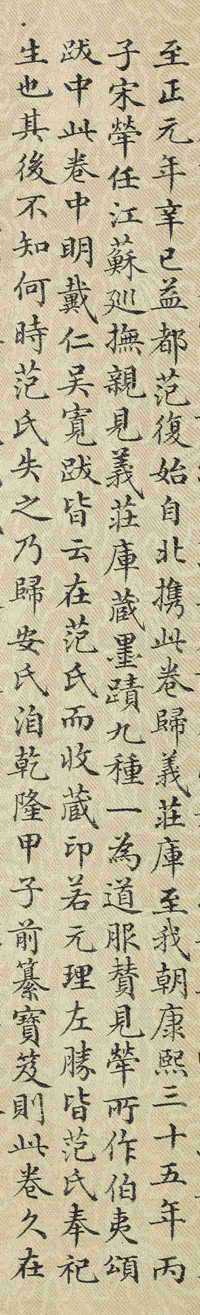 至正元年辛巳益都范復始自北攜此卷歸義莊庫至我朝康熙三十五年丙
子宋犖任江蘇巡撫親見義莊庫蔵墨蹟九種一為道服贊見犖所作伯夷頌
跋中此卷中明戴仁吴寛跋皆云在范氏而收蔵印若元理左勝皆范氏奉祀
生也其後不知何時范氏失之乃歸安氏洎乾隆甲子前纂寶笈則此卷久在